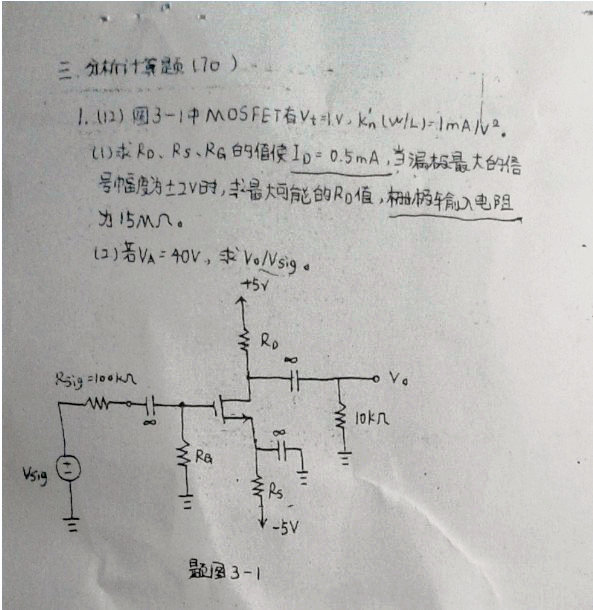 三. 分析计算题 (70)
1. (12) 图3-1中MOSFET有Vt=1V, k'n(W/L)=1mA/V²。
(1)求RD、RS、RG的值使ID=0.5mA,当漏极最大的信
号幅度为±2V时,求最大可能的RD值,栅极输入电阻
为15MΩ。
(2)若VA=40V,求Vo/Vsig。
+5V
RD
∞
Vo
Rsig=100kΩ
∞
10kΩ
∞
RG
Vsig
RS
-5V
题图3-1